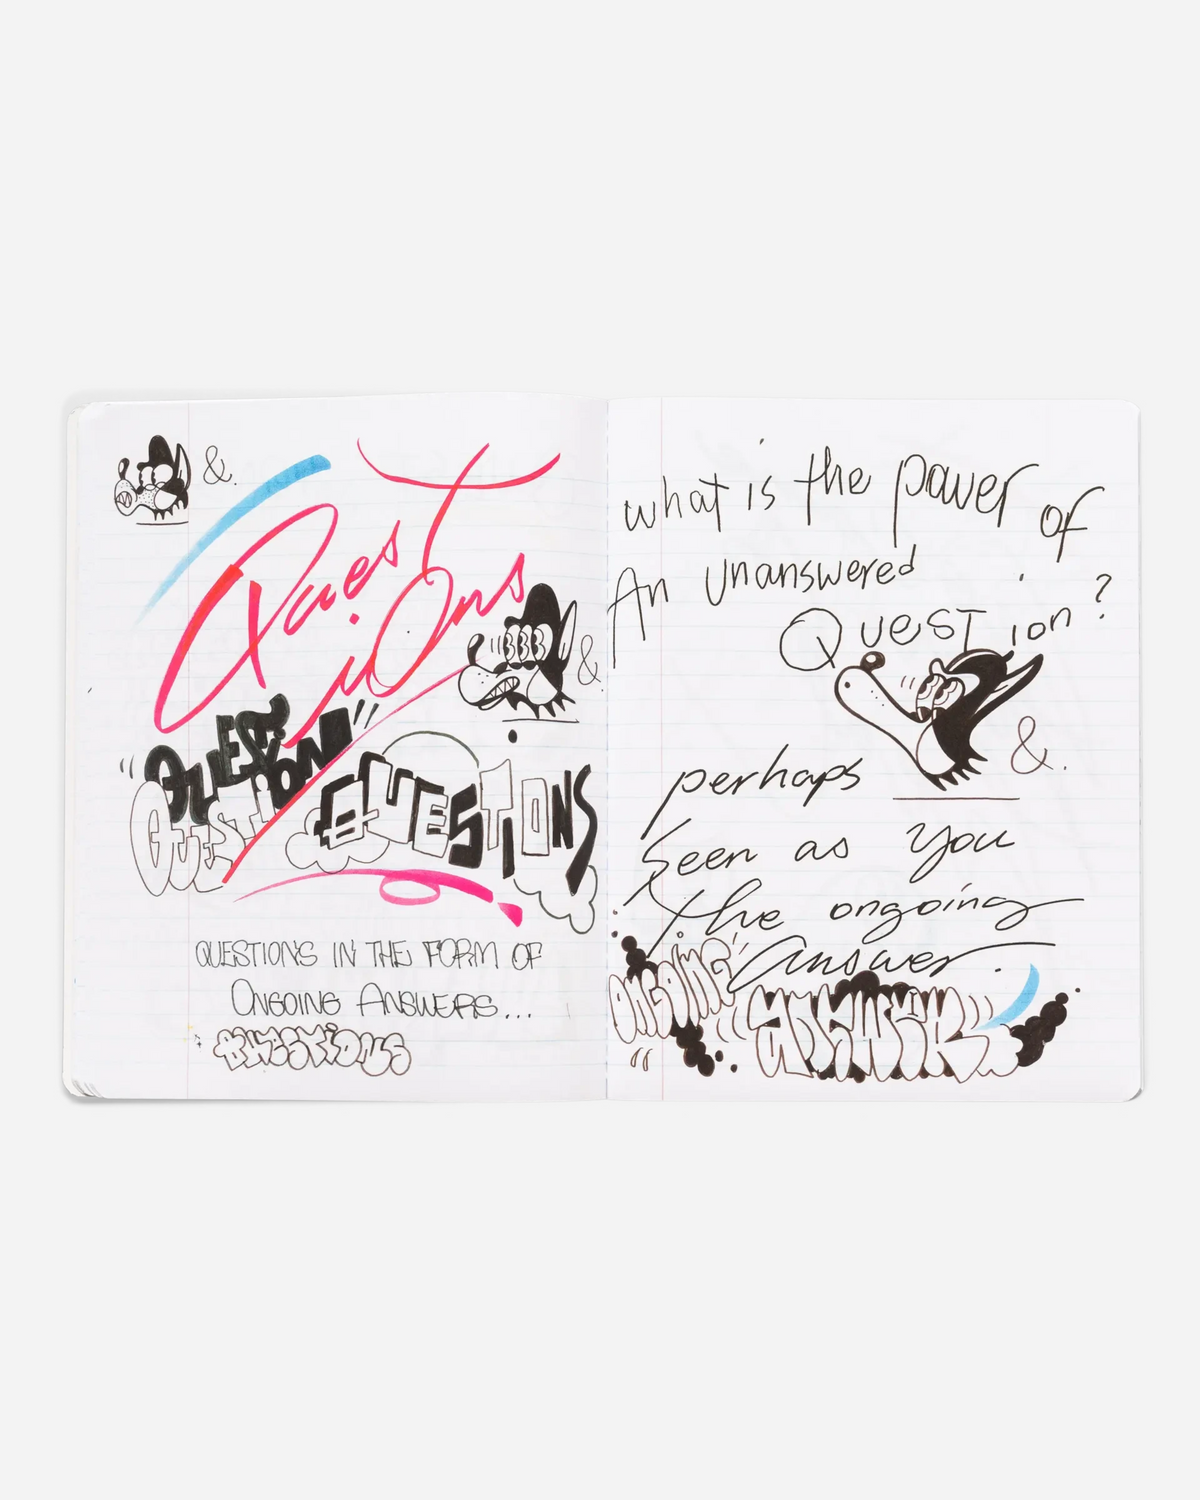 &.
Quest
ions
&.
"QUEST
ION"
QUESTI
QUESTIONS
QUESTIONS IN THE FORM OF
ONGOING ANSWERS...
QUESTIONS
what is the power of
An unanswered
Question?
&.
perhaps
Seen as you
the ongoing
answer.
ONGOING
ANSWER